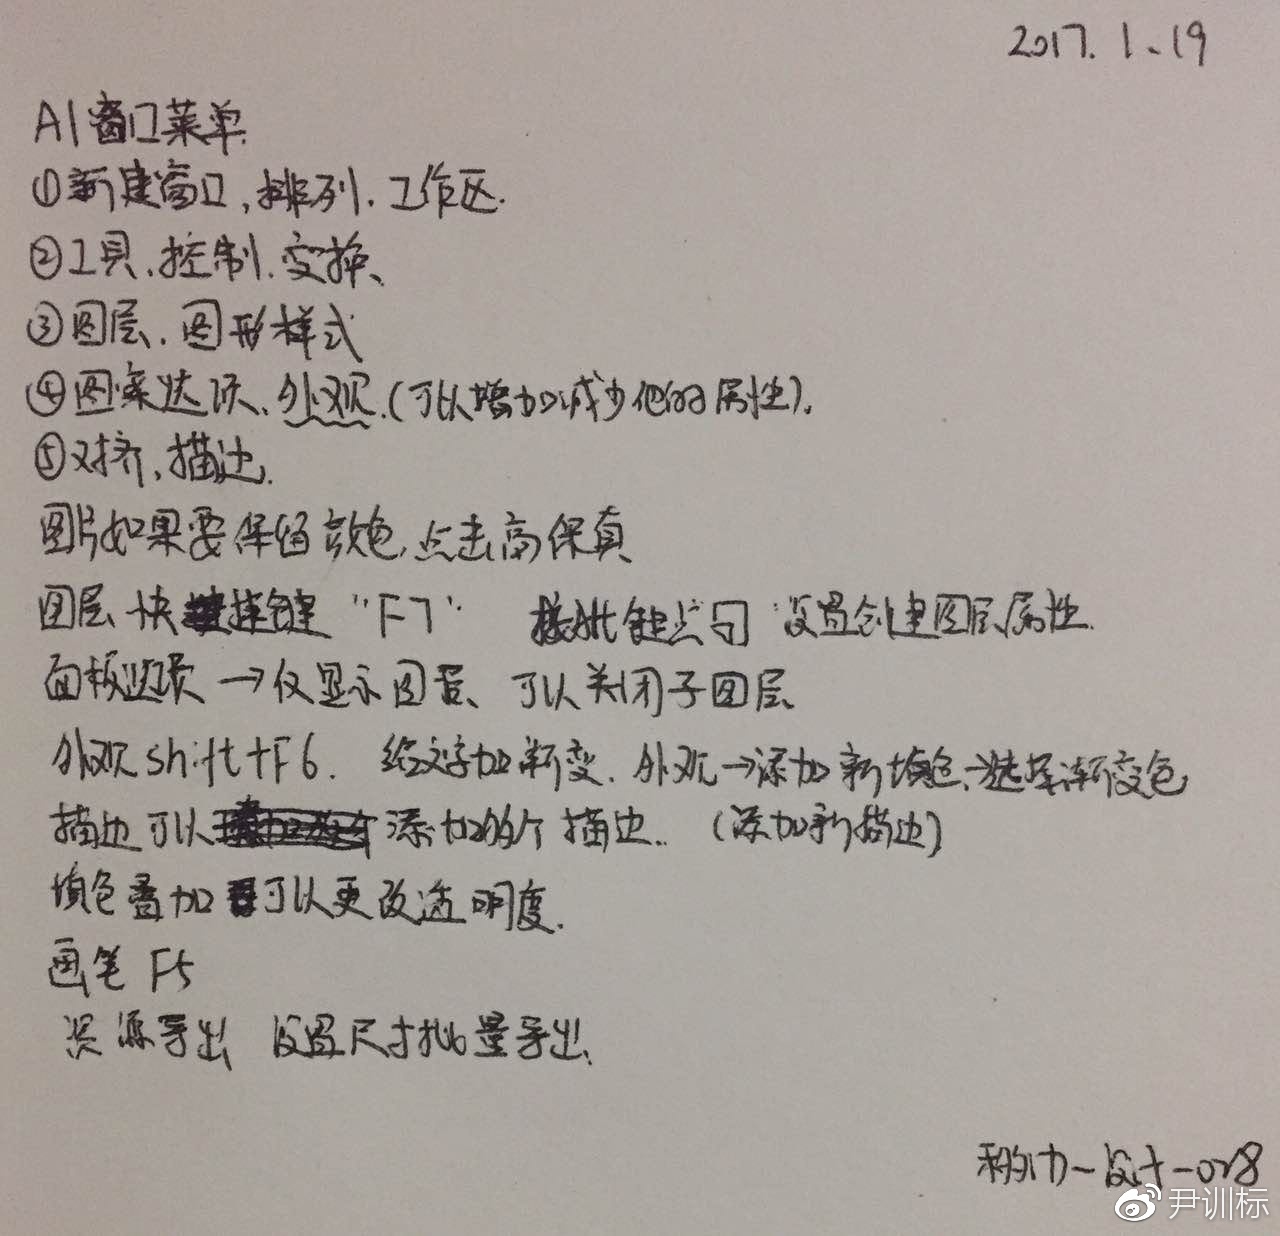 2017.1.19
AI窗口菜单
①新建窗口,排列.工作区.
②工具.控制.变换、
③图层.图形样式
④图案选项、外观.(可以增加减少他的属性).
⑤对齐、描边.
图片如果要保留颜色,点击高保真
图层快捷键"F7" 按Alt键点 设置创建图层属性.
面板选项→仅显示图层、可以关闭子图层
外观shift+F6. 给文字加渐变.外观→添加新填色、选择渐变色
描边可以添加多个描边..(添加新描边)
填色叠加可以更改透明度.
画笔 F5
资源导出 设置尺寸批量导出、
设计-028
尹训标